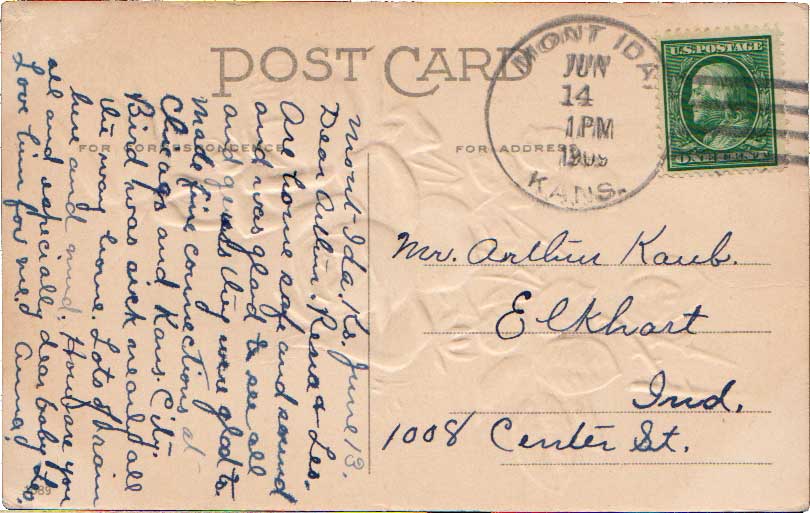 POST CARD
FOR CORRESPONDENCE
FOR ADDRESS
MONT IDA
JUN
14
1PM
1909
KANS.
U.S. POSTAGE
ONE CENT
Mont Ida. Ks. June 13.
Dear Arthur. Rena & Leo.
Are home safe and sound
and was glad to see all
and guess they were glad to.
Made fine connections at
Chicago and Kans. City.
Bird was sick nearly all
the way home. Lots of rain
here and mud. How are you
all and especially dear baby Leo.
Love him for me. Anna.
Mr. Arthur Kaub.
Elkhart
Ind.
1008 Center St.